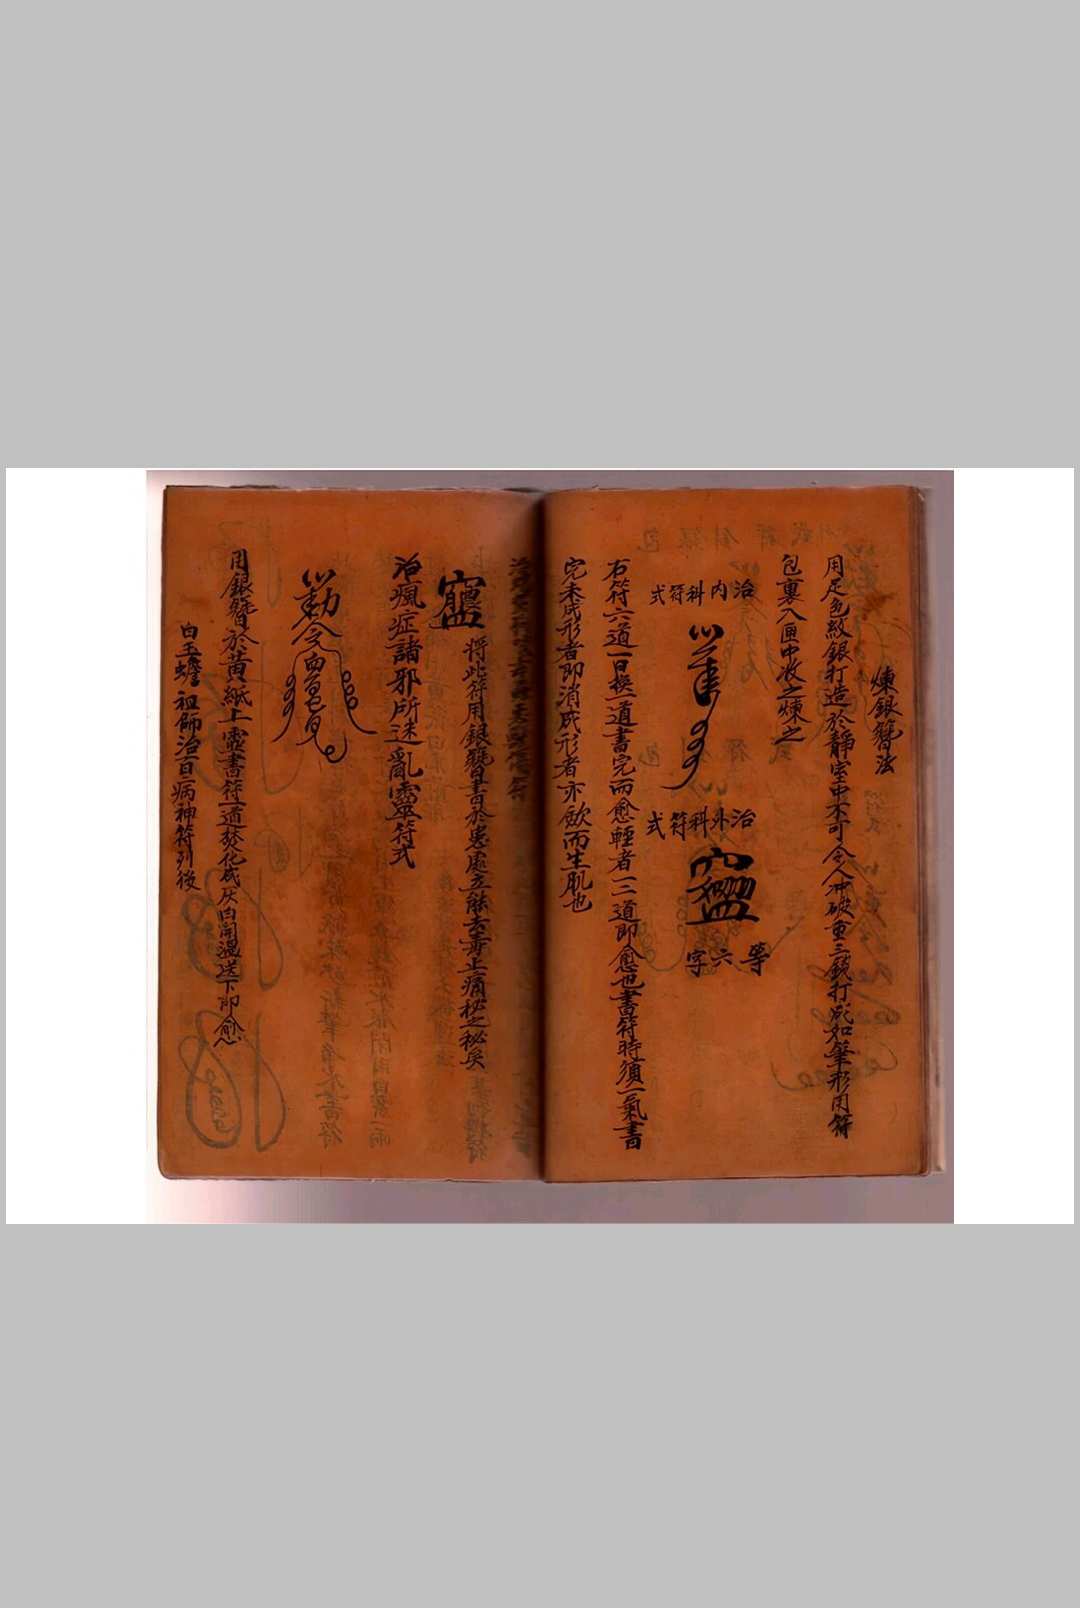 煉銀簪法
用足色紋銀打造於靜室中不可令人冲破重三錢打成如筆形用符
包裏入匣中收之煉之
治內科符式
治外科符式
等六字
右符六道一日換一道書完而愈輕者一二道即愈也書符時須一氣書
完未成形者即消成形者亦歛而生肌也
將此符用銀簪書於患處立能去毒止痛秘之秘矣
治瘋症諸邪所迷亂靈符式
勅令
用銀簪於黃紙上虛書符一道焚化成灰白湯溫送下即愈
白玉蟾祖師治百病神符列後